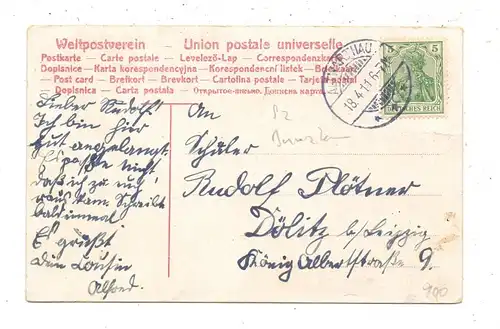 Weltpostverein Union postale universelle
Postkarte — Carte postale — Levelező-Lap — Correspondenzkarte
Dopisnice — Karta korespondencyjna — Korespondenční lístek
Post card — Brefkort — Brevkort — Cartolina postale — Tarjeta postal
Dopisnica — Carta postala — Открытое письмо
18.4.11.6-7N.
5
DEUTSCHES REICH
Lieber Rudolf!
Ich bin hier
gut angelangt.
daß ich zu
bald einmal
Es grüßt
Dein Cousin
Alfred.
An
Schüler
Rudolf Plötner
Dölitz b/Leipzig
König Albertstraße 9.